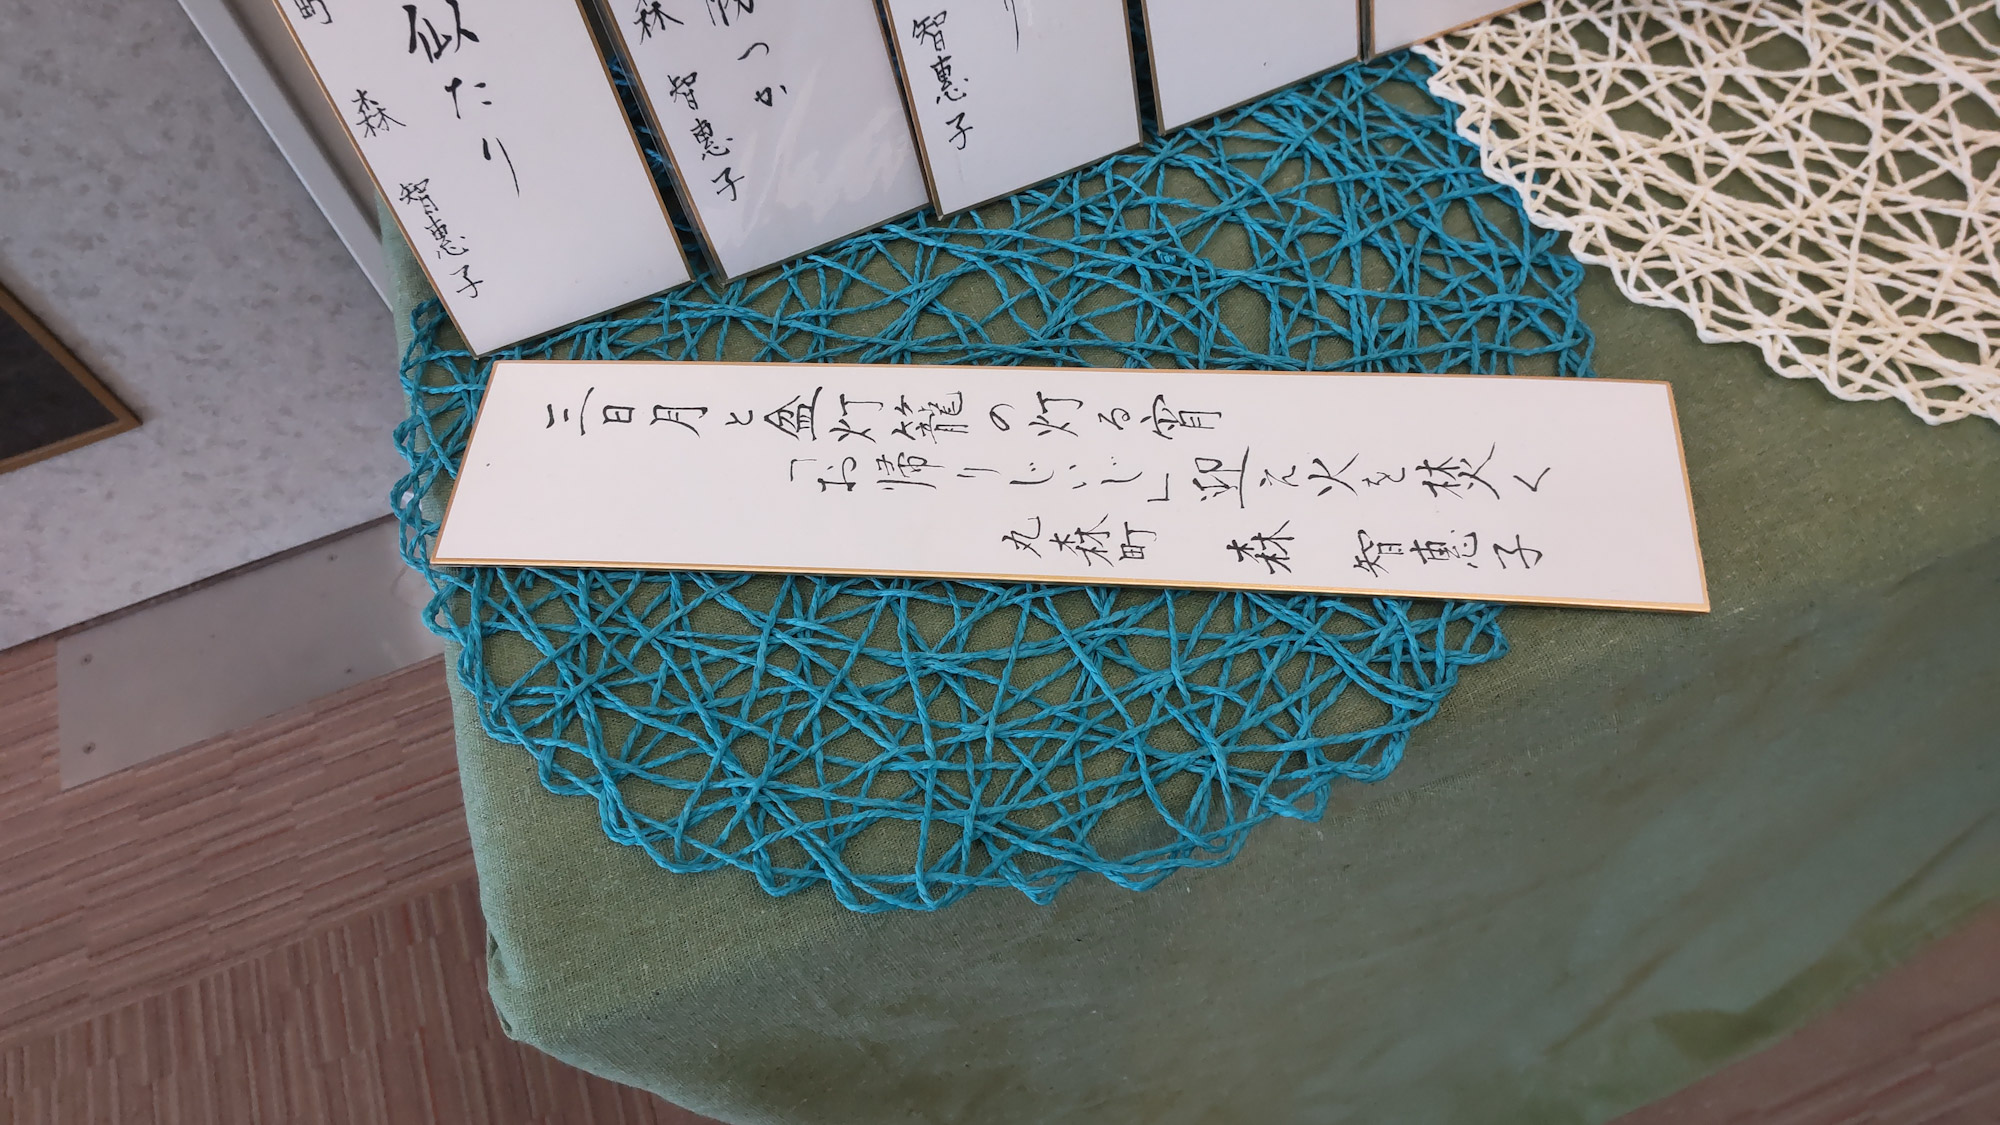 り
智恵子
つか
森 智恵子
似たり
町 森 智恵子
三日月と盆灯籠の灯る宵
「お帰りじいじ」迎え火を焚く
丸森町 森 智恵子